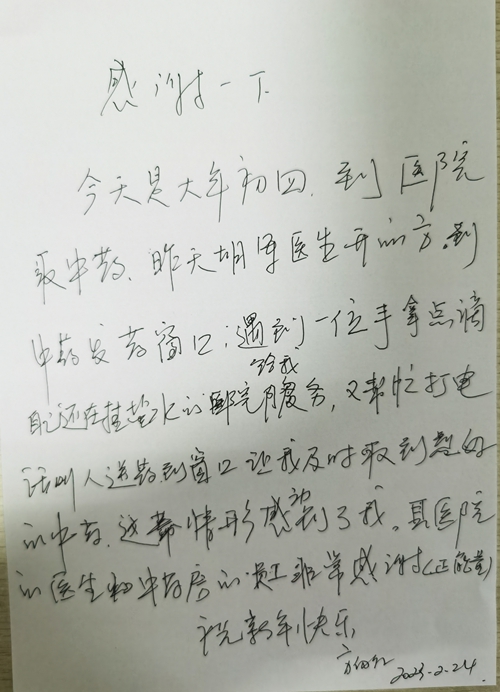 感谢一下
今天是大年初四、到医院
取中药、昨天胡军医生开的方,到
中药发药窗口,遇到一位手拿点滴
给我
自己还在挂盐水的 服务,又帮忙打电
话叫人送药到窗口让我及时取到熬好
的中药、这幕情形感动到了我。县医院
的医生和中药房的员工非常感谢(正能量)
祝新年快乐